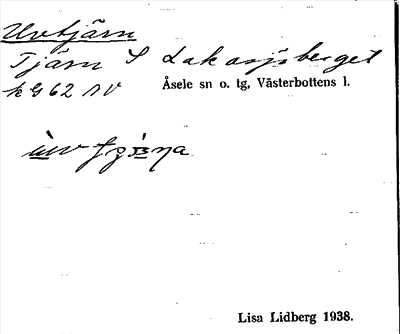 Uvtjärn
Tjärn S Lakasjöberget
k G 62 NV Åsele sn o. tg, Västerbottens l.
Lisa Lidberg 1938.